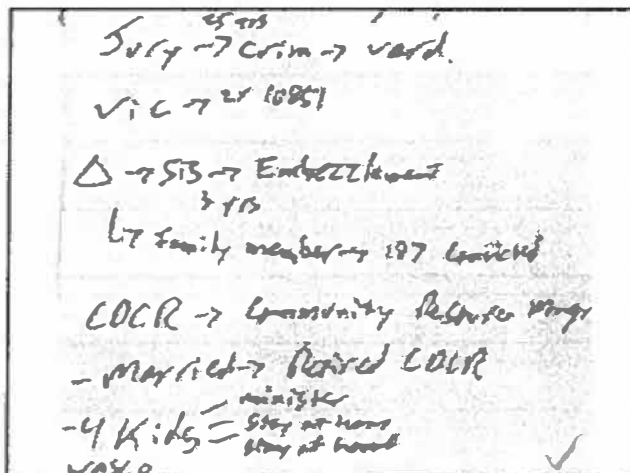 25 yrs
Jury → Crim → verd.
Vic → 2x 10851
Δ → Sib → Embezzlement
3 yrs
↳ family member → 187 Convicted
CDCR → Community Resource Mngr
- Married → Retired CDCR
minister
- 4 Kids = stay at home
stay at home